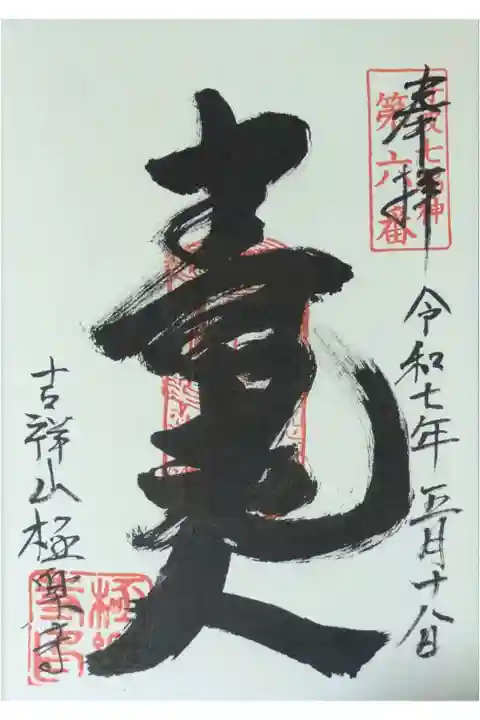 奉拝
第六番
令和七年五月十八日
壽老人
吉祥山極楽寺